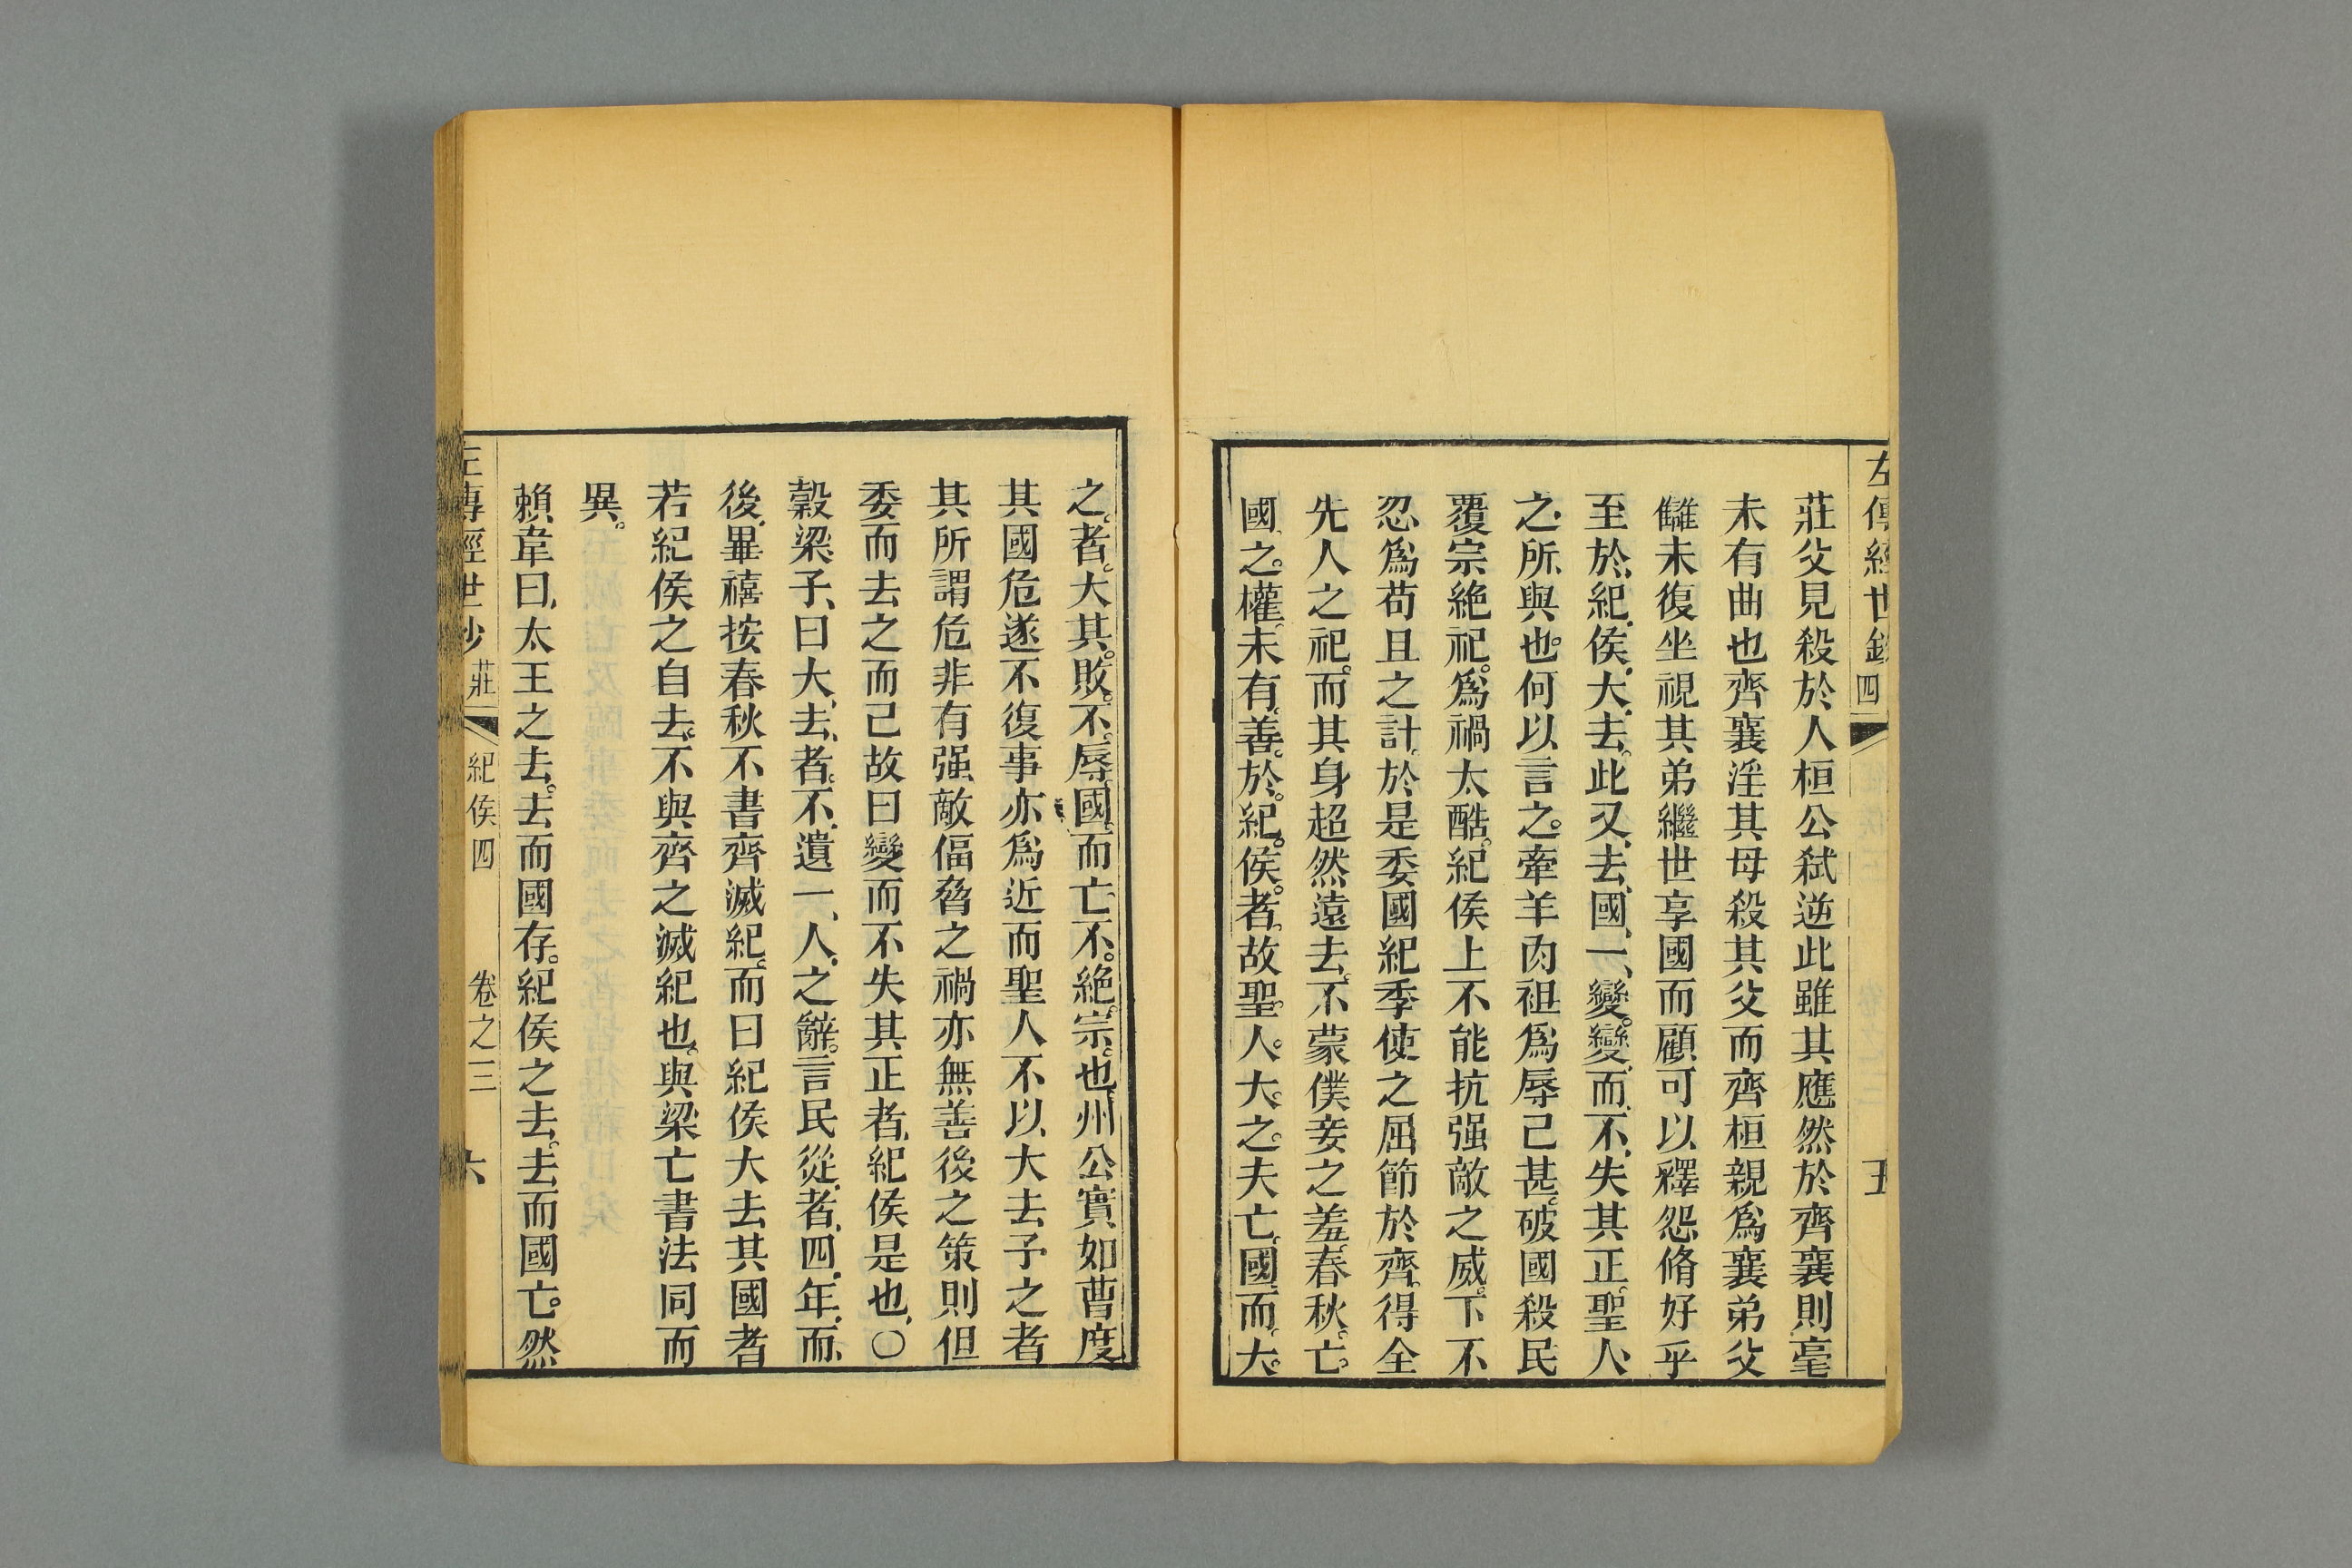 左傳經世鈔 四 五
莊父見殺於人桓公弒逆此雖其應然於齊襄則毫
未有曲也齊襄淫其母殺其父而齊桓親爲襄弟父
讎未復坐視其弟繼世享國而顧可以釋怨脩好乎
至於紀侯大去此又去國一變變而不失其正聖人
之所與也何以言之牽羊肉袒爲辱己甚破國殺民
覆宗絶祀爲禍太酷紀侯上不能抗强敵之威下不
忍爲苟且之計於是委國紀季使之屈節於齊得全
先人之祀而其身超然遠去不蒙僕妾之羞春秋亡
國之權未有善於紀侯者故聖人大之夫亡國而大
之者大其敗不辱國而亡不絶宗也州公實如曹度
其國危遂不復事亦爲近而聖人不以大去予之者
其所謂危非有强敵偪脅之禍亦無善後之策則但
委而去之而己故曰變而不失其正者紀侯是也○
穀梁子曰大去者不遺一人之辭言民從者四年而
後畢禧按春秋不書齊滅紀而曰紀侯大去其國者
若紀侯之自去不與齊之滅紀也與梁亡書法同而
異
賴韋曰太王之去去而國存紀侯之去去而國亡然
左傳經世鈔 莊 紀侯四 卷之三 六